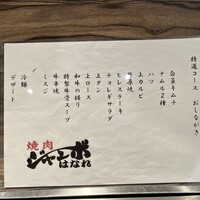 特選コース おしながき
白菜キムチ
ナムル2種
ハツ
上カルビ
ヒレステーキ
チョレギサラダ
上タン
上ロース
和牛の握り
特製牛骨スープ
牛串焼
ミスジ
冷麺
デザート
焼肉
ジャンボ
はなれ